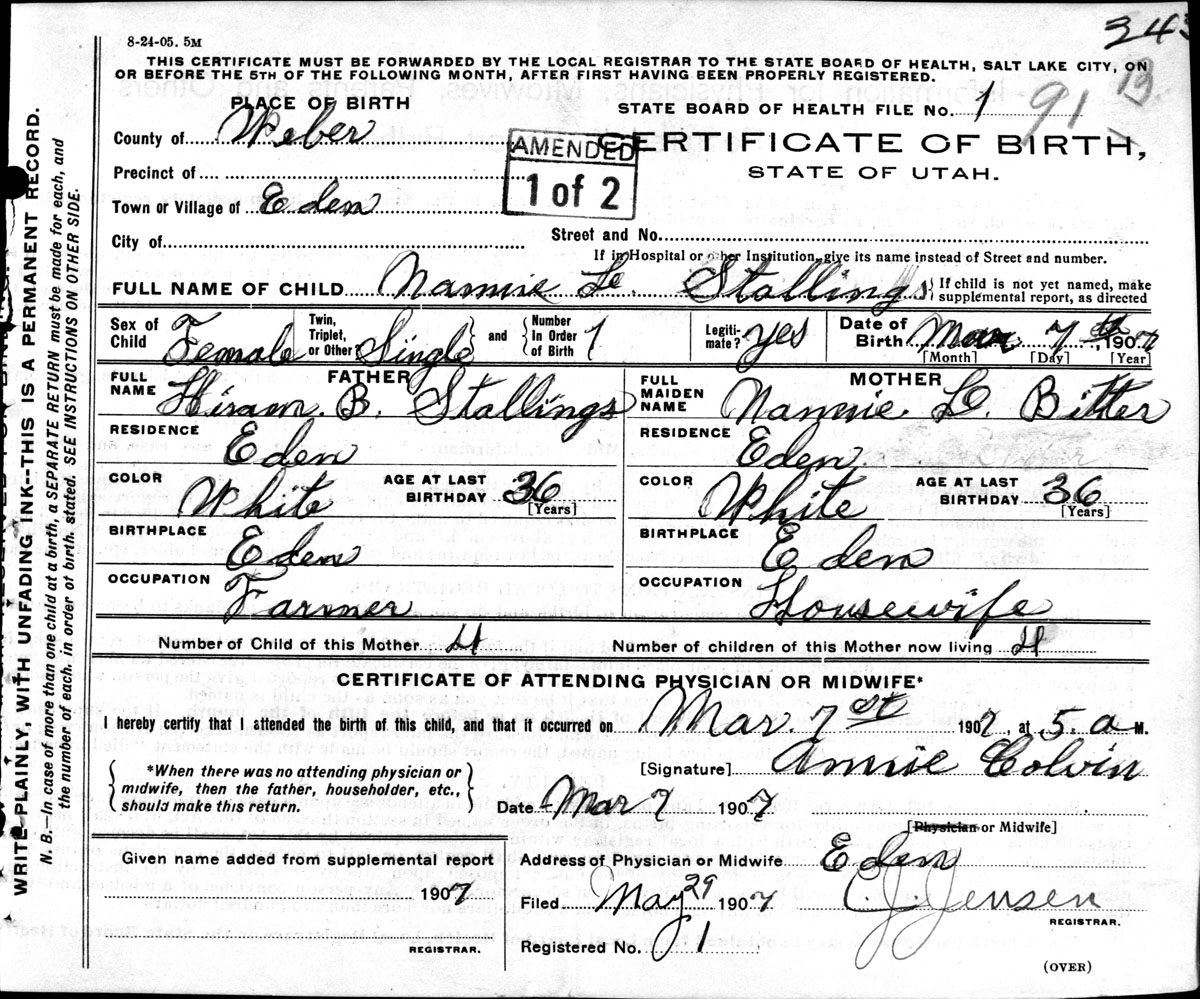 8-24-05. 5M
343
THIS CERTIFICATE MUST BE FORWARDED BY THE LOCAL REGISTRAR TO THE STATE BOARD OF HEALTH, SALT LAKE CITY, ON
OR BEFORE THE 5TH OF THE FOLLOWING MONTH, AFTER FIRST HAVING BEEN PROPERLY REGISTERED.
13
PLACE OF BIRTH
STATE BOARD OF HEALTH FILE No. 1 91
County of Weber
AMENDED
1 of 2
CERTIFICATE OF BIRTH,
STATE OF UTAH.
Precinct of
Town or Village of Eden
City of
Street and No.
If in Hospital or other Institution, give its name instead of Street and number.
FULL NAME OF CHILD Nannie L. Stallings { If child is not yet named, make supplemental report, as directed
Sex of Child Female Twin, Triplet, or Other? Single and Number In Order of Birth 1 Legitimate? yes Date of Birth Mar 7 th, 1907
[Month] [Day] [Year]
FATHER
FULL NAME Hiram. B. Stallings
MOTHER
FULL MAIDEN NAME Nannie L. Bitter
RESIDENCE Eden
RESIDENCE Eden
COLOR White AGE AT LAST BIRTHDAY 36 [Years]
COLOR White AGE AT LAST BIRTHDAY 36 [Years]
BIRTHPLACE Eden
BIRTHPLACE Eden
OCCUPATION Farmer
OCCUPATION Housewife
Number of Child of this Mother 4 Number of children of this Mother now living 4
CERTIFICATE OF ATTENDING PHYSICIAN OR MIDWIFE*
I hereby certify that I attended the birth of this child, and that it occurred on Mar. 7 st 1907, at 5. a M.
*When there was no attending physician or
midwife, then the father, householder, etc.,
should make this return.
[Signature] Annie Colvin
Date Mar 7 1907
[Physician or Midwife]
Given name added from supplemental report
1907
REGISTRAR.
Address of Physician or Midwife Eden
Filed May 29 1907 C. J. Jensen
REGISTRAR.
Registered No. 1
(OVER)
WRITE PLAINLY, WITH UNFADING INK--THIS IS A PERMANENT RECORD.
N. B.—In case of more than one child at a birth, a SEPARATE RETURN must be made for each, and
the number of each, in order of birth, stated. SEE INSTRUCTIONS ON OTHER SIDE.